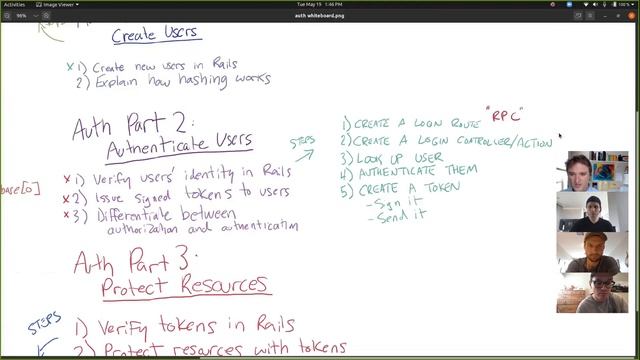 Activities
Image Viewer
Tue May 19 1:46 PM
100%
96%
auth whiteboard.png
Create Users
x 1) Create new users in Rails
2) Explain how hashing works
Auth Part 2:
Authenticate Users
STEPS
base[0]
x 1) Verify users' identity in Rails
x 2) Issue signed tokens to users
x 3) Differentiate between
authorization and authentication
1) CREATE A LOGIN ROUTE "RPC"
2) CREATE A LOGIN CONTROLLER/ACTION
3) LOOK UP USER
4) AUTHENTICATE THEM
5) CREATE A TOKEN
- Sign it
- Send it
Auth Part 3:
Protect Resources
STEPS
1) Verify tokens in Rails
2) Protect resources with tokens